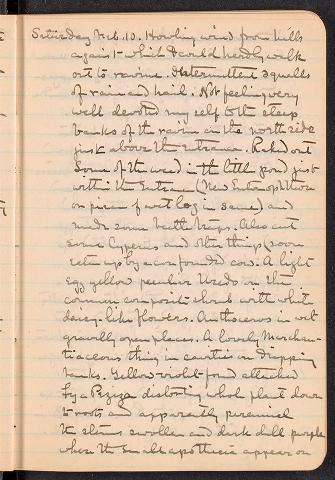 Saturday Feb. 10. Howling wind from hills
against which I could hardly walk
out to ravine. Intermittent squalls
of rain and hail. Not feeling very
well devoted myself to the steep
banks of the ravine on the north side
just above the entrance. Raked out
some of the weed in the little pond just
within the entrance (New
on piece of wet log in same) and
made some beetle traps. Also cut
some Cyperus and other things soon
eaten up by a confounded cow. A light
egg yellow peculiar Uredo on the
common composite shrub with white
daisy-like flowers. Anthoceros in wet
gravelly open places. A lovely Marchan-
tiaceous thing in cavities on dripping
banks. Yellow violet found attacked
by a Peziza distorting whole plant down
to roots and apparently perennial
the stems swollen and dark dull purple
where the small apothecia appear on